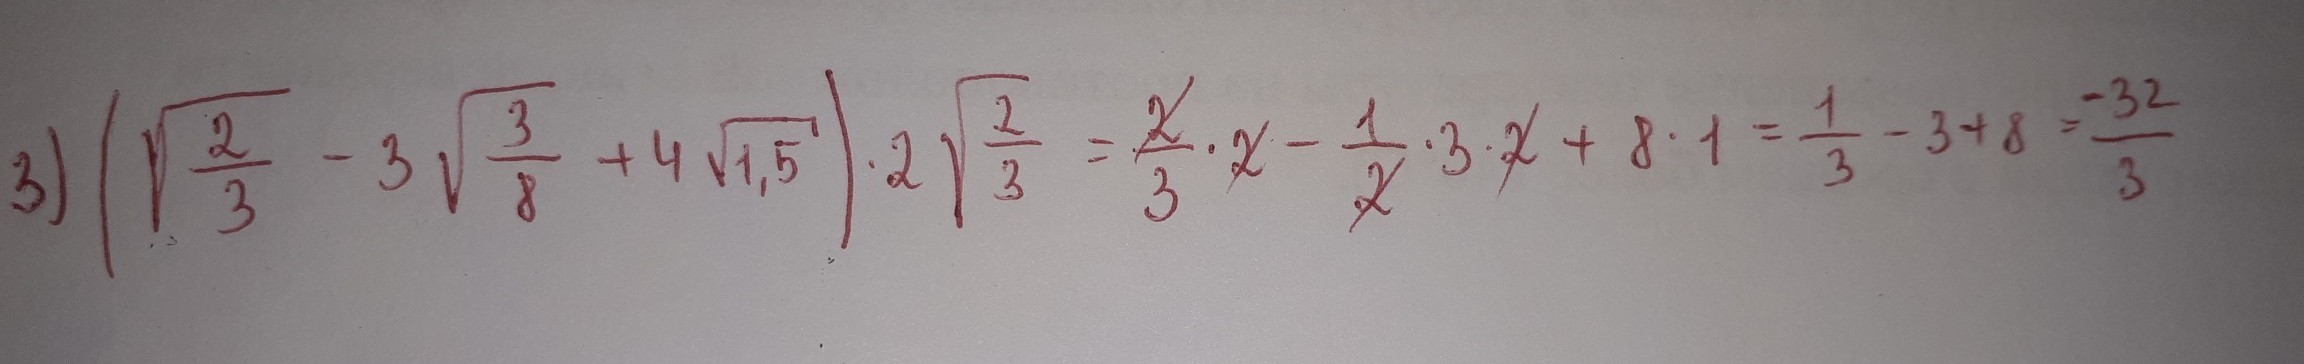 3) (√(2/3) - 3√(3/8) + 4√1,5) · 2√(2/3) = 2/3 · 2 - 1/2 · 3 · 2 + 8 · 1 = 1/3 - 3 + 8 = -32/3